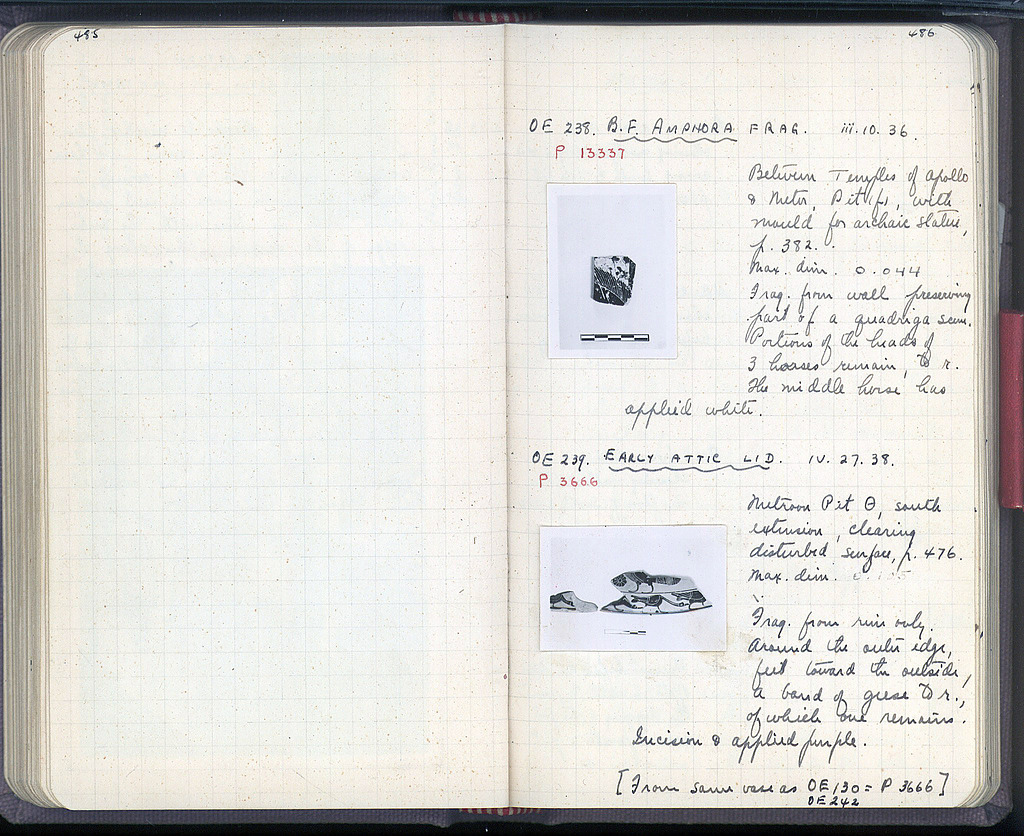 485
486
OE 238. B.F. AMPHORA FRAG. iii.10.36.
P 13337
Between Temples of Apollo
& Meter, Pit (f), with
mould for archaic statue,
p. 382.
Max. dim. 0.044
Frag. from wall preserving
part of a quadriga scene.
Portions of the heads of
3 horses remain, to r.
The middle horse has
applied white.
OE 239. EARLY ATTIC LID. IV.27.38.
P 3666
Metroon Pit Θ, south
extension, clearing
disturbed surface, p. 476.
Max. dim.
Frag. from rim only.
Around the outer edge,
feet toward the outside,
a band of geese to r.,
of which one remains.
Incision & applied purple.
[From same vase as OE 130 = P 3666]
OE 242